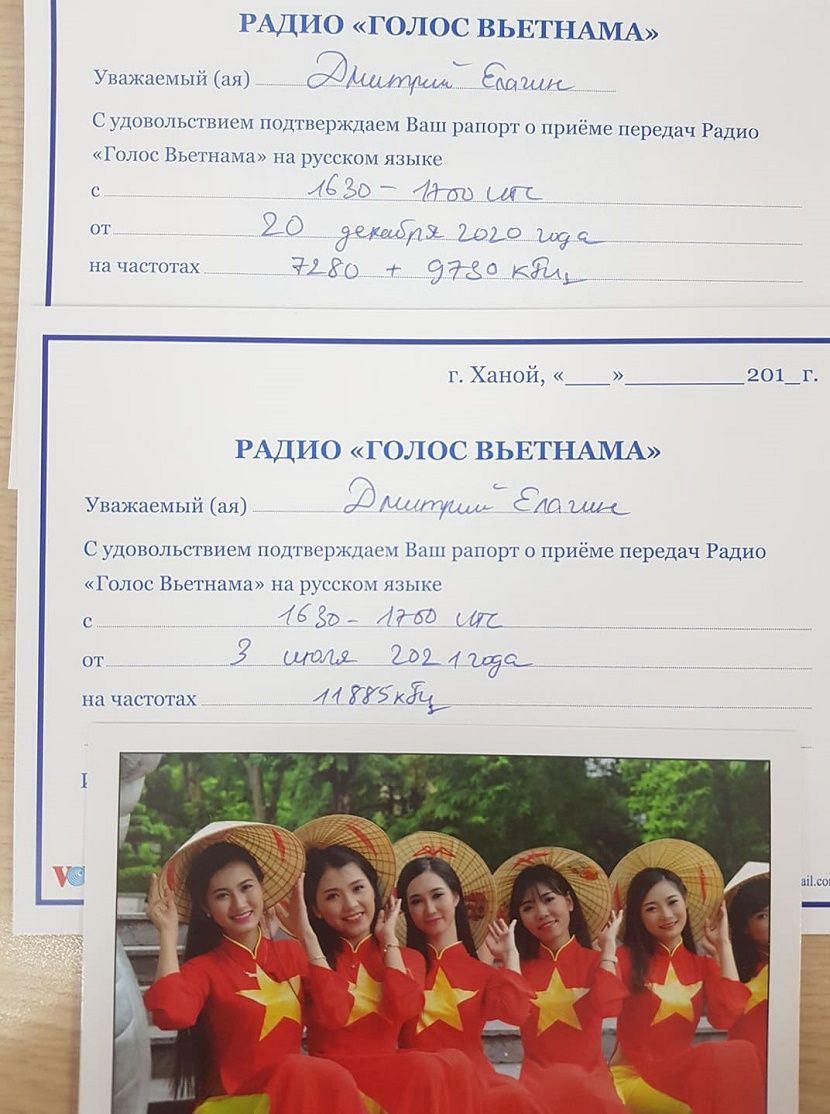 РАДИО «ГОЛОС ВЬЕТНАМА»
Уважаемый (ая) Дмитрий Елагин
С удовольствием подтверждаем Ваш рапорт о приёме передач Радио
«Голос Вьетнама» на русском языке
с 1630 - 1700 UTC
от 20 декабря 2020 года
на частотах 7280 + 9730 кГц
г. Ханой, «___»__________201_г.
РАДИО «ГОЛОС ВЬЕТНАМА»
Уважаемый (ая) Дмитрий Елагин
С удовольствием подтверждаем Ваш рапорт о приёме передач Радио
«Голос Вьетнама» на русском языке
с 1630 - 1700 UTC
от 3 июля 2021 года
на частотах 11885 кГц
ail.com